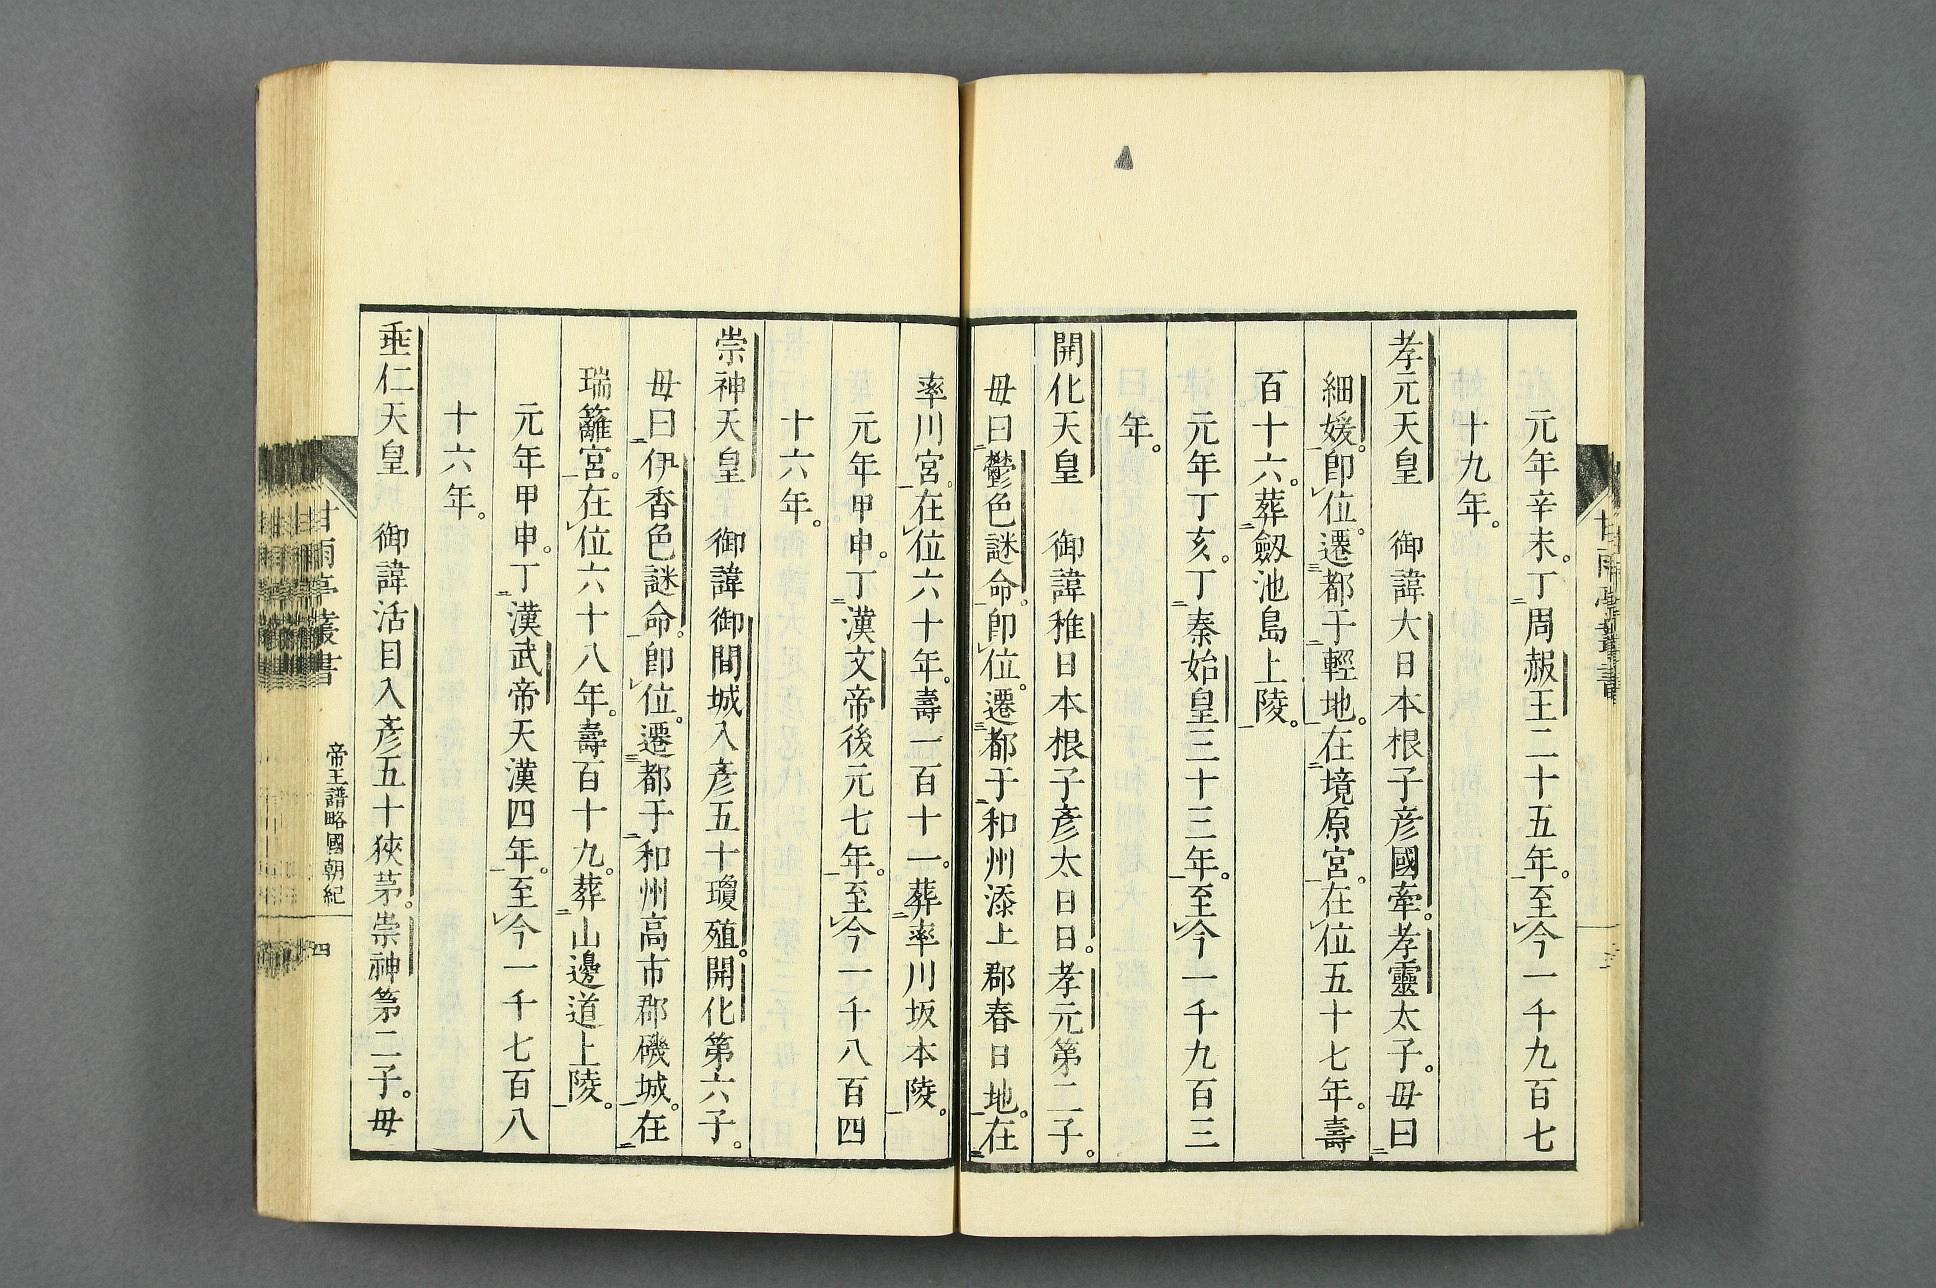 元年辛未。丁周赧王二十五年。至今一千九百七
十九年。
孝元天皇 御諱大日本根子彦國牽。孝靈太子。毋曰
細媛。即位。遷都于輕地。在境原宮。在位五十七年。壽
百十六。葬劔池島上陵。
元年丁亥。丁秦始皇三十三年。至今一千九百三
年。
開化天皇 御諱稚日本根子彦太日日。孝元第二子。
毋曰鬱色謎命。即位。遷都于和州添上郡春日地。在
率川宮。在位六十年。壽一百十一。葬率川坂本陵。
元年甲申。丁漢文帝後元七年。至今一千八百四
十六年。
崇神天皇 御諱御間城入彦五十瓊殖。開化第六子。
毋曰伊香色謎命。即位。遷都于和州高市郡磯城。在
瑞籬宮。在位六十八年。壽百十九。葬山邊道上陵。
元年甲申。丁漢武帝天漢四年。至今一千七百八
十六年。
垂仁天皇 御諱活目入彦五十狹茅。崇神第二子。毋
甘雨亭叢書 帝王譜略國朝紀 四